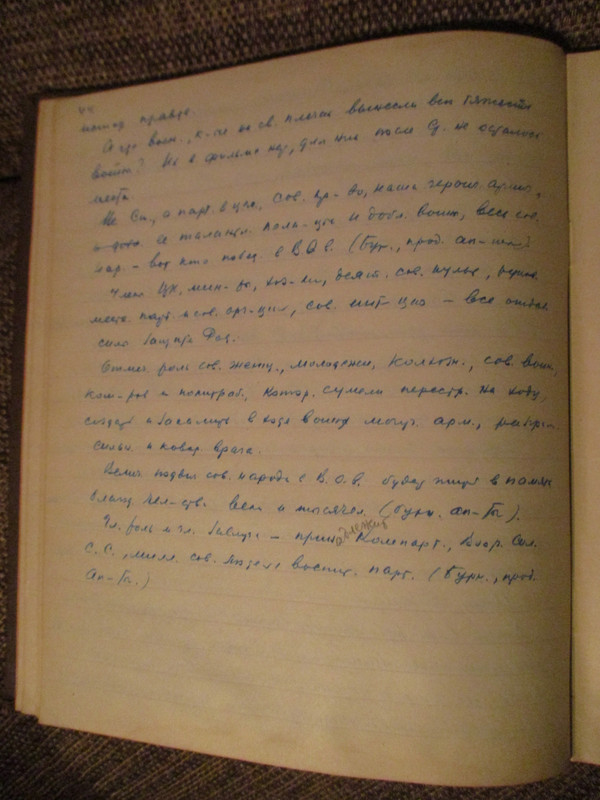 44
истор. правде.
А где воин., к-ые на св. плечах вынесли все тяжести
войны? Им в фильме нет, для них после Ст. не осталось
места.
Не Ст., а парт. в цел., сов. пр-во, наша героич. армия,
ее талантл. полк-цы и добл. воины, весь сов.
нар. - вот кто побед. в В.О.в. (Бурн., прод. ап-ты)
Члены ЦК, мин-ры, хоз-ки, деят. сов. культ.,
местн. парт. и сов. орг-ций, сов. инт-ция - все отдав.
силы защите Род.
Отмет. роль сов. женщ., молодежи, колхозн., сов. воин,
ком-ров и политраб., котор. сумели перестр. на ходу,
создать и закалить в ходе войны могущ. арм., разбить
сильн. и ковар. врага.
Велик. подвиг сов. народа в В.О.в. будет жить в памяти
благод. чел-ства века и тысячел. (бурн. ап-ты).
Гл. роль и гл. заслуга - принадлежит Компарт.,
С.С., милл. сов. людей, воспит. парт. (Бурн., прод.
ап-ты.)